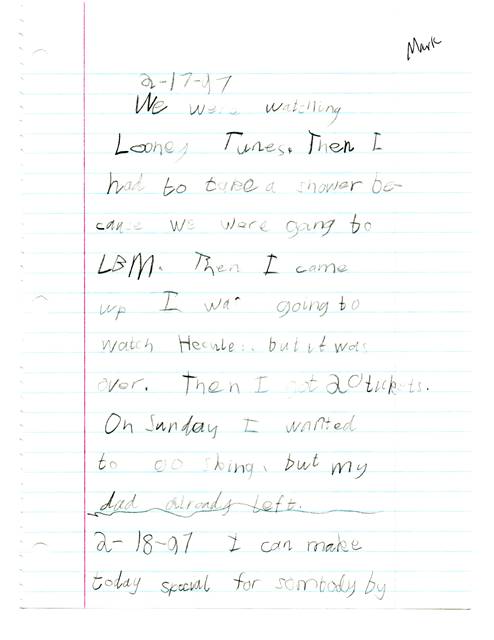 Mark
2-17-97
We were watching
Looney Tunes. Then I
had to take a shower be-
cause we were gang to
LBM. Then I came
up I was going to
watch Hecules. but it was
over. Then I got 20 tickets.
On Sunday I wanted
to go skiing. but my
dad already left.
2-18-97 I can make
today special for sombody by